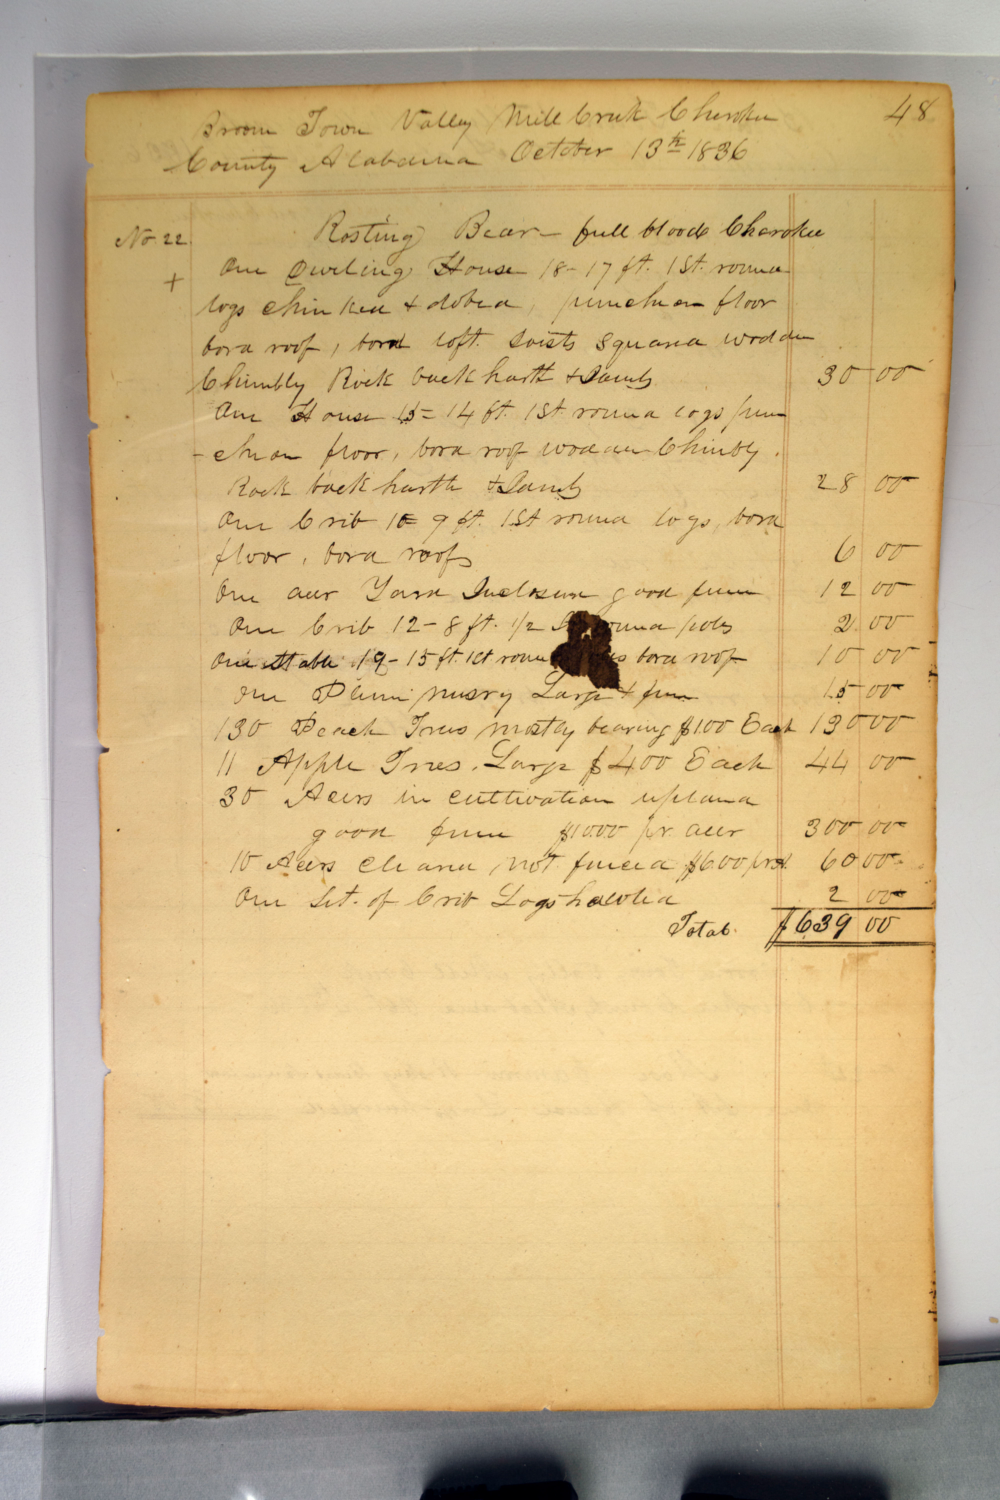 48
Broom Town Valley Mill Creek Cherokee
County Alabama October 13th 1836
No 22. Rosting Bear — full blood Cherokee
+ One Dweling House 18-17 ft. 1 St. round
logs chinked & dobed, puncheon floor
bord roof, bord loft. Joists squared wooden
Chimbly Rock back harth & Jambs 30 00
One House 15=14 ft. 1 St. round logs pun
-cheon floor, bord roof wooden Chimbly.
Rock back harth & Jambs 28 00
One Crib 10=9 ft. 1 St round logs, bord
floor, bord roof 6 00
One acer Yard Inclosure good fence 12 00
One Crib 12-8 ft. 1/2 round poles 2 00
One Stable 19-15 ft. 1 St round bord roof 10 00
One Plum nusry Large & fine 15 00
130 Peach Trees mostly bearing $1 00 Each 130 00
11 Apple Trees. Large $4 00 Each 44 00
30 Acers in cultivation upland
good fence $10 00 pr. acer 300 00
10 Acers cleared not fenced $6 00 pr 60 00
One Set. of Crib Logs 2 00
Total. $639 00